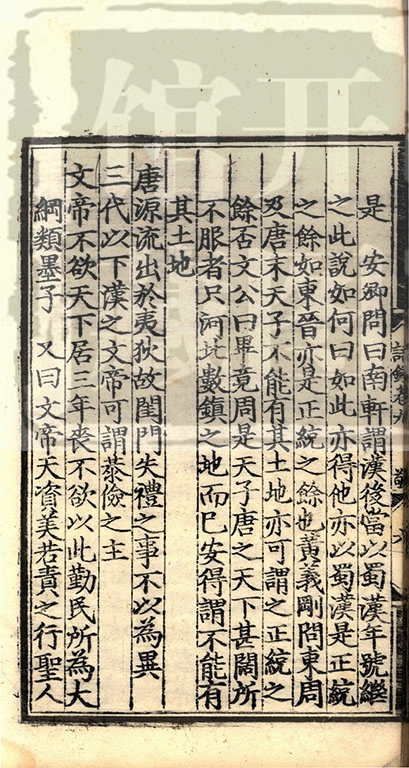 是　安卿問曰南軒謂漢後當以蜀漢年號繼
之此說如何曰如此亦得他亦以蜀漢是正統
之餘如東晉亦是正統之餘也黃義剛問東周
及唐末天子不能有其土地亦可謂之正統之
餘否文公曰畢竟周是天子唐之天下甚闊所
不服者只河北數鎮之地而已安得謂不能有
其土地
唐源流出於夷狄故閨門失禮之事不以為異
三代以下漢之文帝可謂恭儉之主
文帝不欲天下居三年喪不欲以此勤民所為大
綱類墨子　又曰文帝天資美若責之行聖人